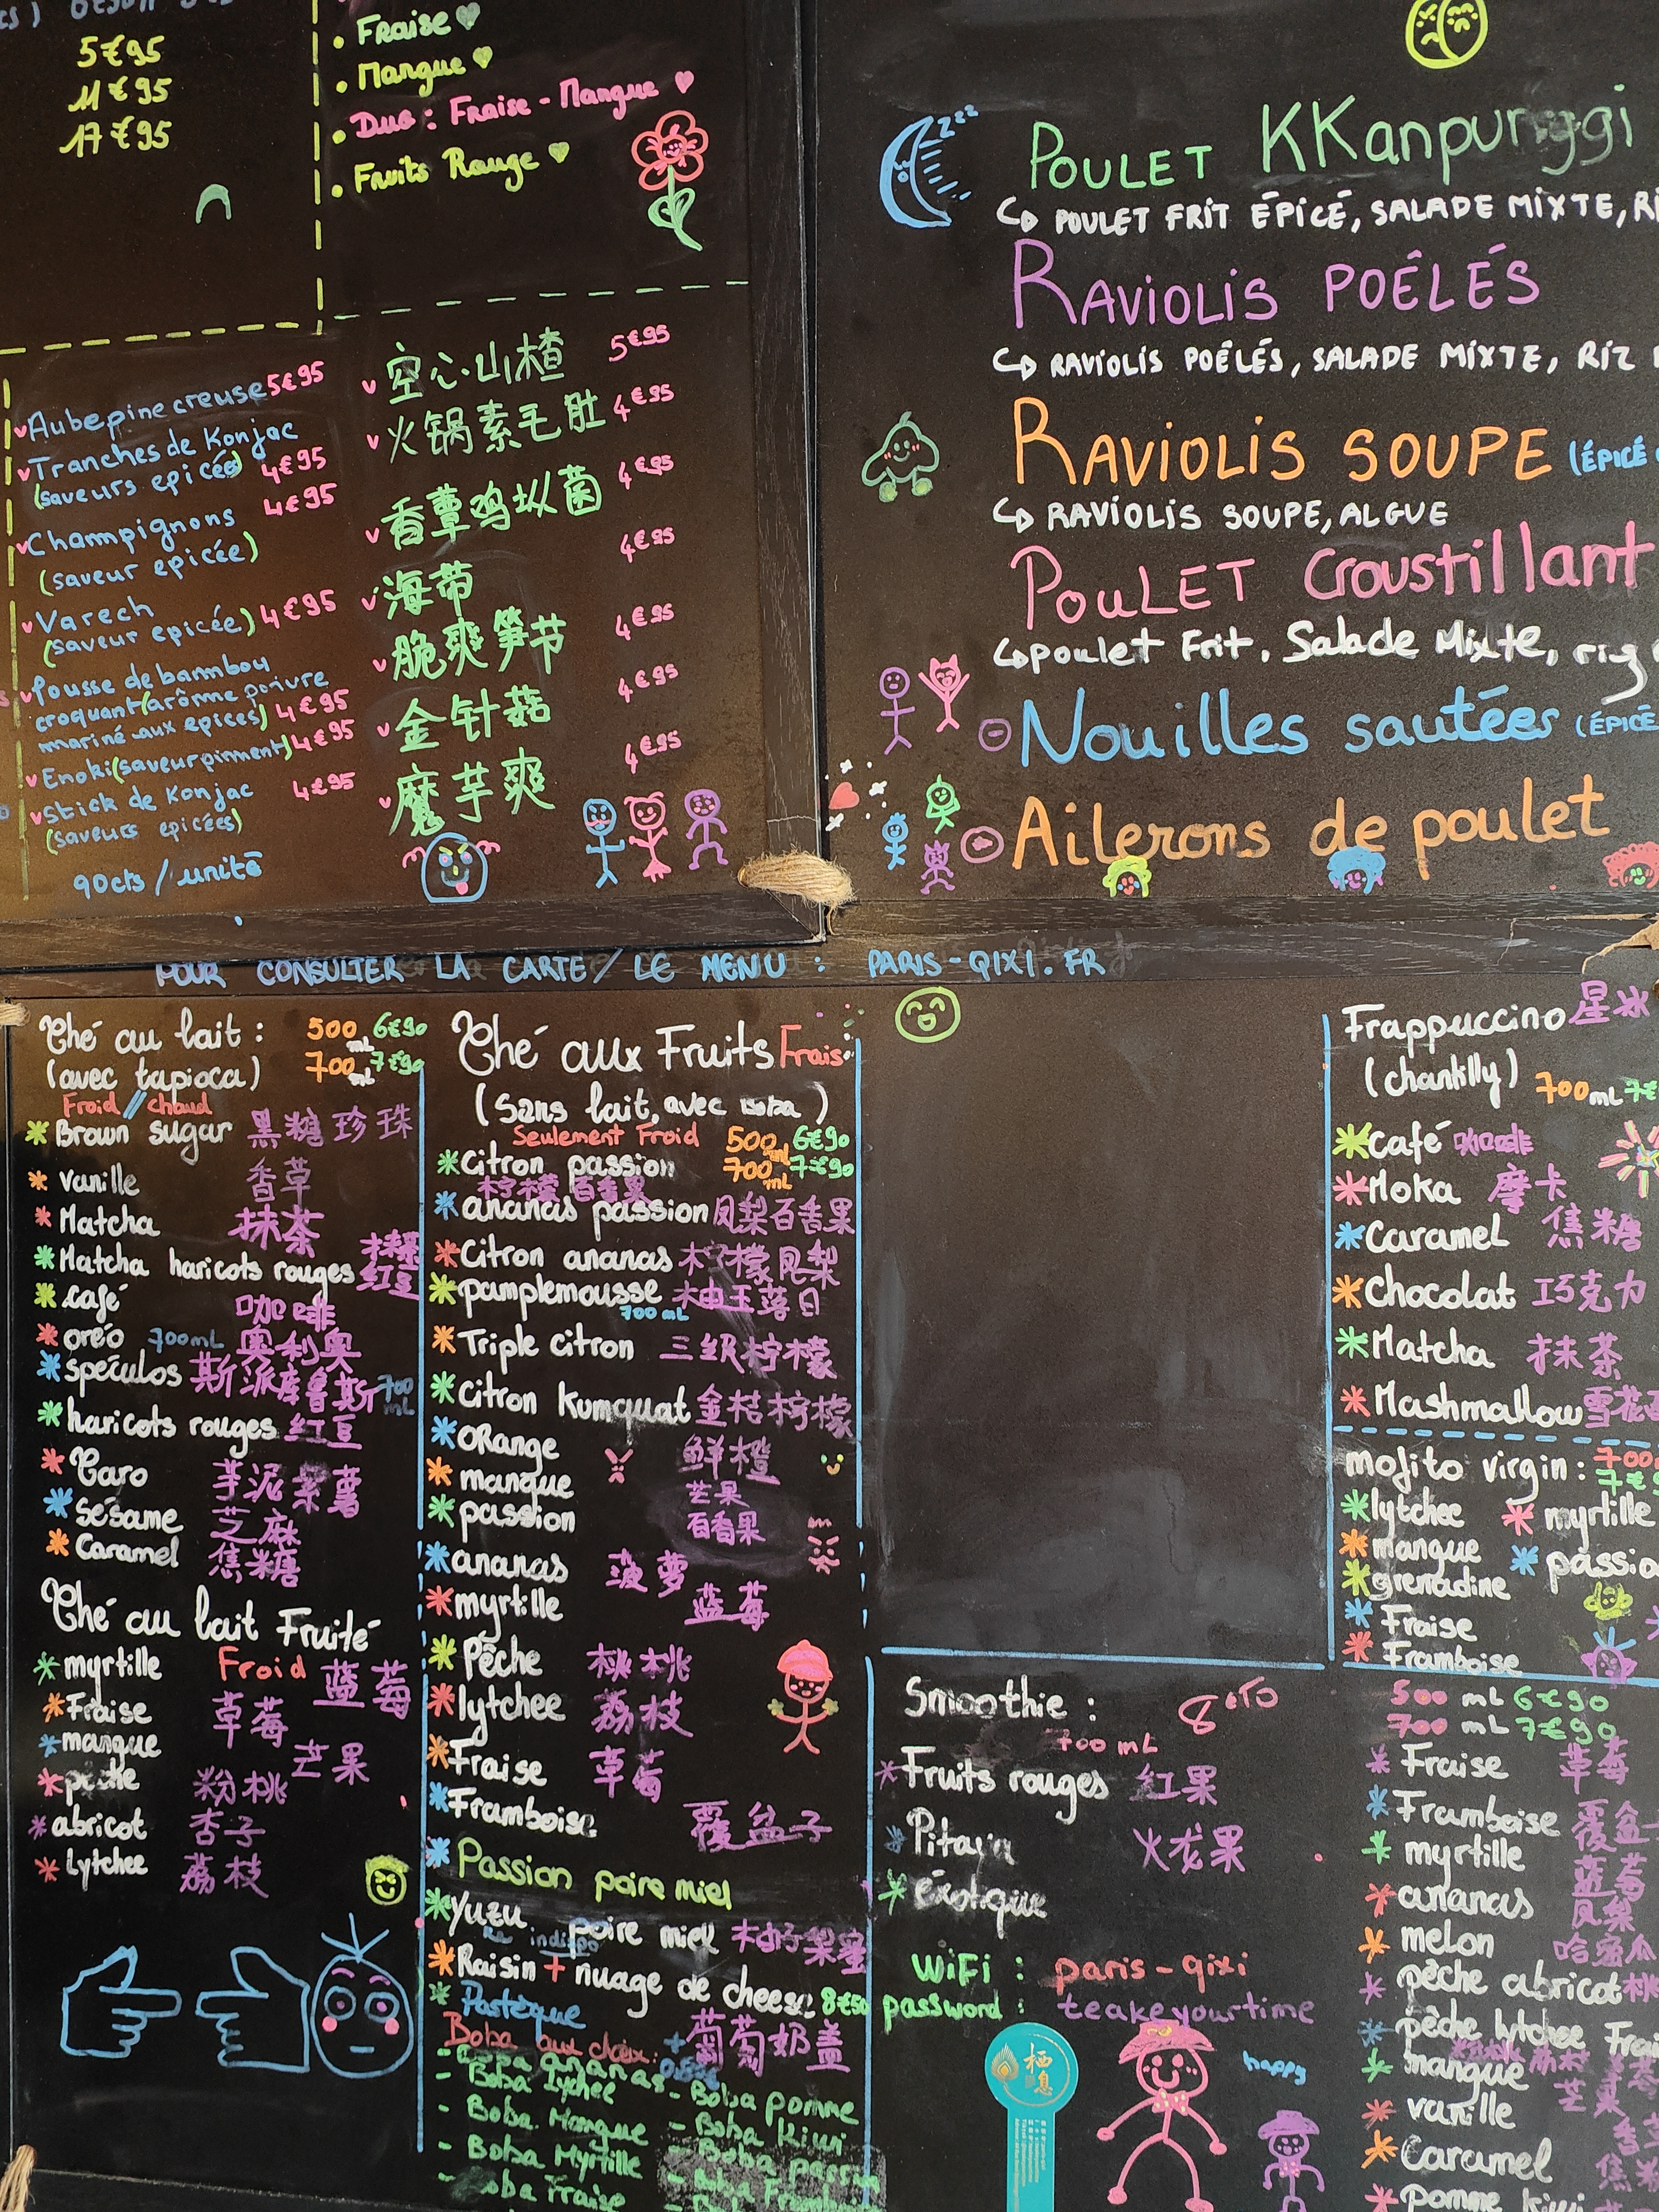 5€95
11€95
17€95
• Fraise
• Mangue
• Duo : Fraise - Mangue
• Fruits Rouge
Aubepine creuse 5€95
Tranches de Konjac
(saveurs epicées) 4€95
Champignons 4€95
(saveur epicée)
Varech
(saveur epicée) 4€95
Pousse de bammbou
croquant (arômme poivre
mariné aux epices) 4€95
Enoki (saveur pinment) 4€95
Stick de Konjac 4€95
(saveurs epicées)
90cts / unité
空心山楂 5€95
火锅素毛肚 4€95
香蕈鸡枞菌 4€95
海带 4€95
脆爽笋节 4€95
金针菇 4€95
魔芋爽 4€95
zzz
POULET KKanpunggi
POULET FRIT ÉPICÉ, SALADE MIXTE,
RAVIOLIS POÊLÉS
RAVIOLIS POÊLÉS, SALADE MIXTE, RIZ
RAVIOLIS SOUPE (ÉPICÉ
RAVIOLIS SOUPE, ALGUE
POULET Croustillant
poulet Frit, Salade Mixte, riz
Nouilles sautées (ÉPICÉ
Ailerons de poulet
POUR CONSULTER LA CARTE / LE MENU : PARIS-QIXI.FR
Thé au lait : 500 mL 6€90
(avec tapioca) 700 mL 7€90
Froid // chaud
Brown sugar 黑糖珍珠
vanille 香草
Matcha 抹茶
Matcha haricots rouges 抹茶红豆
café 咖啡
oréo 700mL 奥利奥
spéculos 斯派库鲁斯 700 mL
haricots rouges 红豆
Taro 芋泥紫薯
sésame 芝麻
Caramel 焦糖
Thé au lait Fruité
Froid
myrtille 蓝莓
Fraise 草莓
mangue 芒果
pêche 粉桃
abricot 杏子
Lytchee 荔枝
Thé aux Fruits Frais
(sans lait, avec boba)
Seulement Froid 500 mL 6€90
700 mL 7€90
Citron passion
柠檬百香果
ananas passion 凤梨百香果
Citron ananas 柠檬凤梨
pamplemousse 柚王落日
700 mL
Triple citron 三级柠檬
citron Kumquat 金桔柠檬
ORange 鲜橙
mangue 芒果
passion 百香果
ananas 菠萝
myrtille 蓝莓
Pêche 桃桃
lytchee 荔枝
Fraise 草莓
Framboise 覆盆子
Passion poire miel
Yuzu poire miel 柚子梨蜜
indispo
Raisin + nuage de cheese 8€50
Pastèque 葡萄奶盖
Boba aux choix:
- Boba ananas
- Boba Lychee
- Boba Mangue
- Boba Myrtille
- Boba Fraise
- Boba pomme
- Boba Kiwi
- Boba passion
- Boba Framboise
Smoothie : 8€50
700 mL
Fruits rouges 红果
Pitaya 火龙果
éxotique
WiFi : paris-qixi
password : teakeyourtime
栖息
happy
Frappuccino 星冰
(chantilly) 700mL
Café 咖啡
Moka 摩卡
Caramel 焦糖
Chocolat 巧克力
Matcha 抹茶
Mashmallow 雪花
mojito virgin : 700
7€
lytchee
myrtille
mangue
passio
grenadine
Fraise
Framboise
500 mL 6€90
700 mL 7€90
Fraise 草莓
Framboise 覆盆
myrtille 蓝莓
ananas 凤梨
melon 哈密瓜
pêche abricot 桃
pêche lytchee
mangue 芒果
vanille
Caramel 焦
pomme kiwi